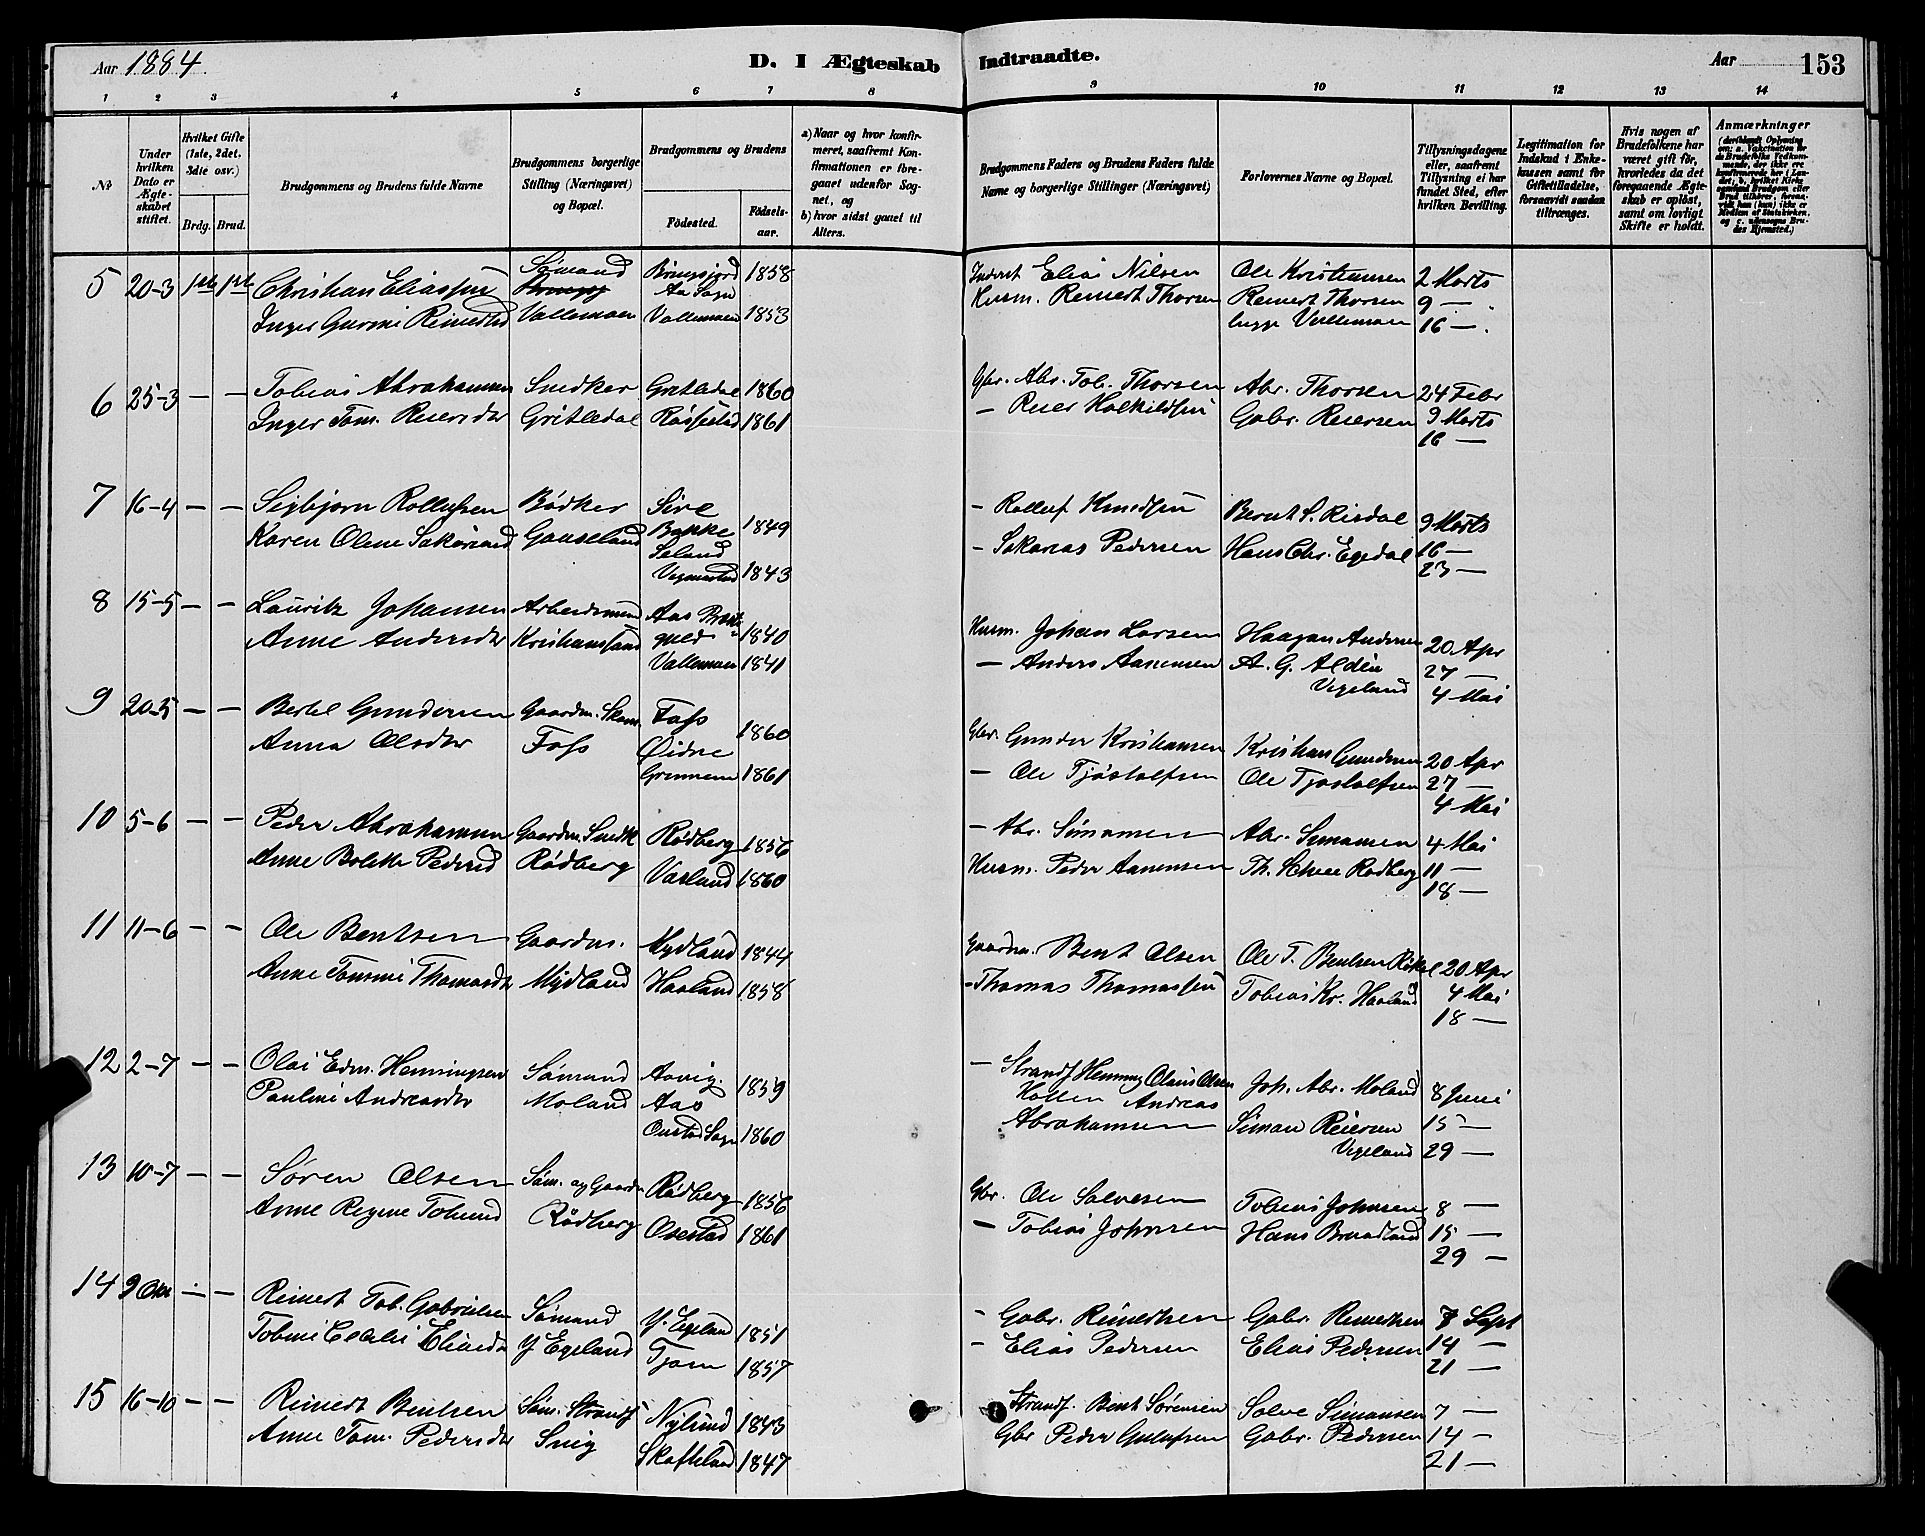 Aar 1884.
D. I Ægteskab Indtraadte.
Aar 153
1 2 3 4 5 6 7 8 9 10 11 12 13 14
№
Under hvilken Dato er Ægteskabet stiftet.
Hvilket Gifte (1ste, 2det, 3die osv.)
Brdg. Brud.
Brudgommens og Brudens fulde Navne
Brudgommens borgerlige Stilling (Næringsvei) og Bopæl.
Brudgommens og Brudens
Fødested. Fødselsaar.
a) Naar og hvor konfirmeret, saafremt Konfirmationen er foregaaet udenfor Sognet, og
b) hvor sidst gaaet til Alters.
Brudgommens Faders og Brudens Faders fulde Navne og borgerlige Stillinger (Næringsvei)
Forlovernes Navne og Bopæl.
Tillysningsdagene eller, saafremt Tillysning ei har fundet Sted, efter hvilken Bevilling.
Legitimation for Indskud i Enkekassen samt for Giftetilladelse, forsaavidt saadan tiltrænges.
Hvis nogen af Brudefolkene har været gift før, hvorledes da det foregaaende Ægteskab er opløst, samt om lovligt Skifte er holdt.
Anmærkninger
5 20-3 1ste 1ste Christian Eliassen Sømand 1858 Elias Nilsen Ole Kristiansen 2 Marts
Aa Sogn Husm. Reinert Thorsen Reinert Thorsen 9 —
Valleman Valleman 1853 begge Valleman 16 —
6 25-3 — — Tobias Abrahamsen Snedker Gritledal 1860 Gbr. Abr. Tob. Thorsen Abr. Thorsen 24 Febr
Inger Tom. Reiersdtr Gritledal Røssestad 1861 — Reier Gabr. Reiersen 9 Marts
16 —
7 16-4 — — Sigbjørn Rollufsen Bødker Sire - Rolluf Knudsen Bernt S. Risdal 9 Marts
Karen Olene Gauseland Bakke 1849 - Sakarias Pedersen Hans Chr. Egedal 16 —
Vegmestad 1843 23 —
8 15-5 — — Lauritz Johansen Arbeidsmand Aas 1840 Husm. Johan Larsen Haagan Andersen 20 Apr
Anne Andersdtr Kristiansand Valleman 1841 — Anders Aanensen A. G. 27 —
Vigeland 4 Mai
9 20-5 — — Bertel Gundersen Gaardm. Foss 1860 Gbr. Gunder Kristiansen Kristian Gundersen 20 Apr
Anna Olsdtr Foss Øidne — Ole Tjøstolfsen Ole Tjøstolfsen 27 —
1861 4 Mai
10 5-6 — — Peder Abrahamsen Gaardm. Snedk Rødberg 1856 — Abr. Simonsen Abr. Simonsen 4 Mai
Anne Bolette Pedersd Rødberg Vasland 1860 Husm. Peder Aanensen Rødberg 11 —
18 —
11 11-6 — — Ole Bentsen Gaardm. Mydland 1844 Gaardm. Bent Olsen Ole T. Bentsen 20 Apr
Anne Tomine Thomasdtr Mydland Haaland 1858 - Thomas Thomassen Tobias Kr. Haaland 4 Mai
18 —
12 2-7 — — Olai Edm. Henningsen Sømand Aavig 1859 — Strandf Henning Olaus Olsen Joh. Abr. Moland 8 Juni
Pauline Andreasdtr Moland Aas Andreas
Sogn 1860 Abrahamsen Simon Reiersen 15 —
Vigeland 29 —
13 10-7 — — Søren Olsen Søm. og Gaardm Rødberg 1856 Gbr. Ole Salvesen Tobias Johnsen 8 —
Anne Regine Tobiasd Rødberg Osestad 1861 — Tobias Johnsen Hans 15 —
29 —
14 9 Okt — — Reinert Tob. Gabrielsen Sømand Y. Egeland 1851 - Gabr. Reinertsen Gabr. Reinertsen 7 Sept
Y Egeland Tjom 1857 - Elias Pedersen Elias Pedersen 14 —
21 —
15 16-10 — — Reinert Bentsen Søm. Strandf 1843 Strandf. Bent Sørensen Salve Simonsen 7 —
Anne Tom. Pedersdtr Snig Skofteland 1847 Gbr Peder Gabr. Pedersen 14 —
21 —